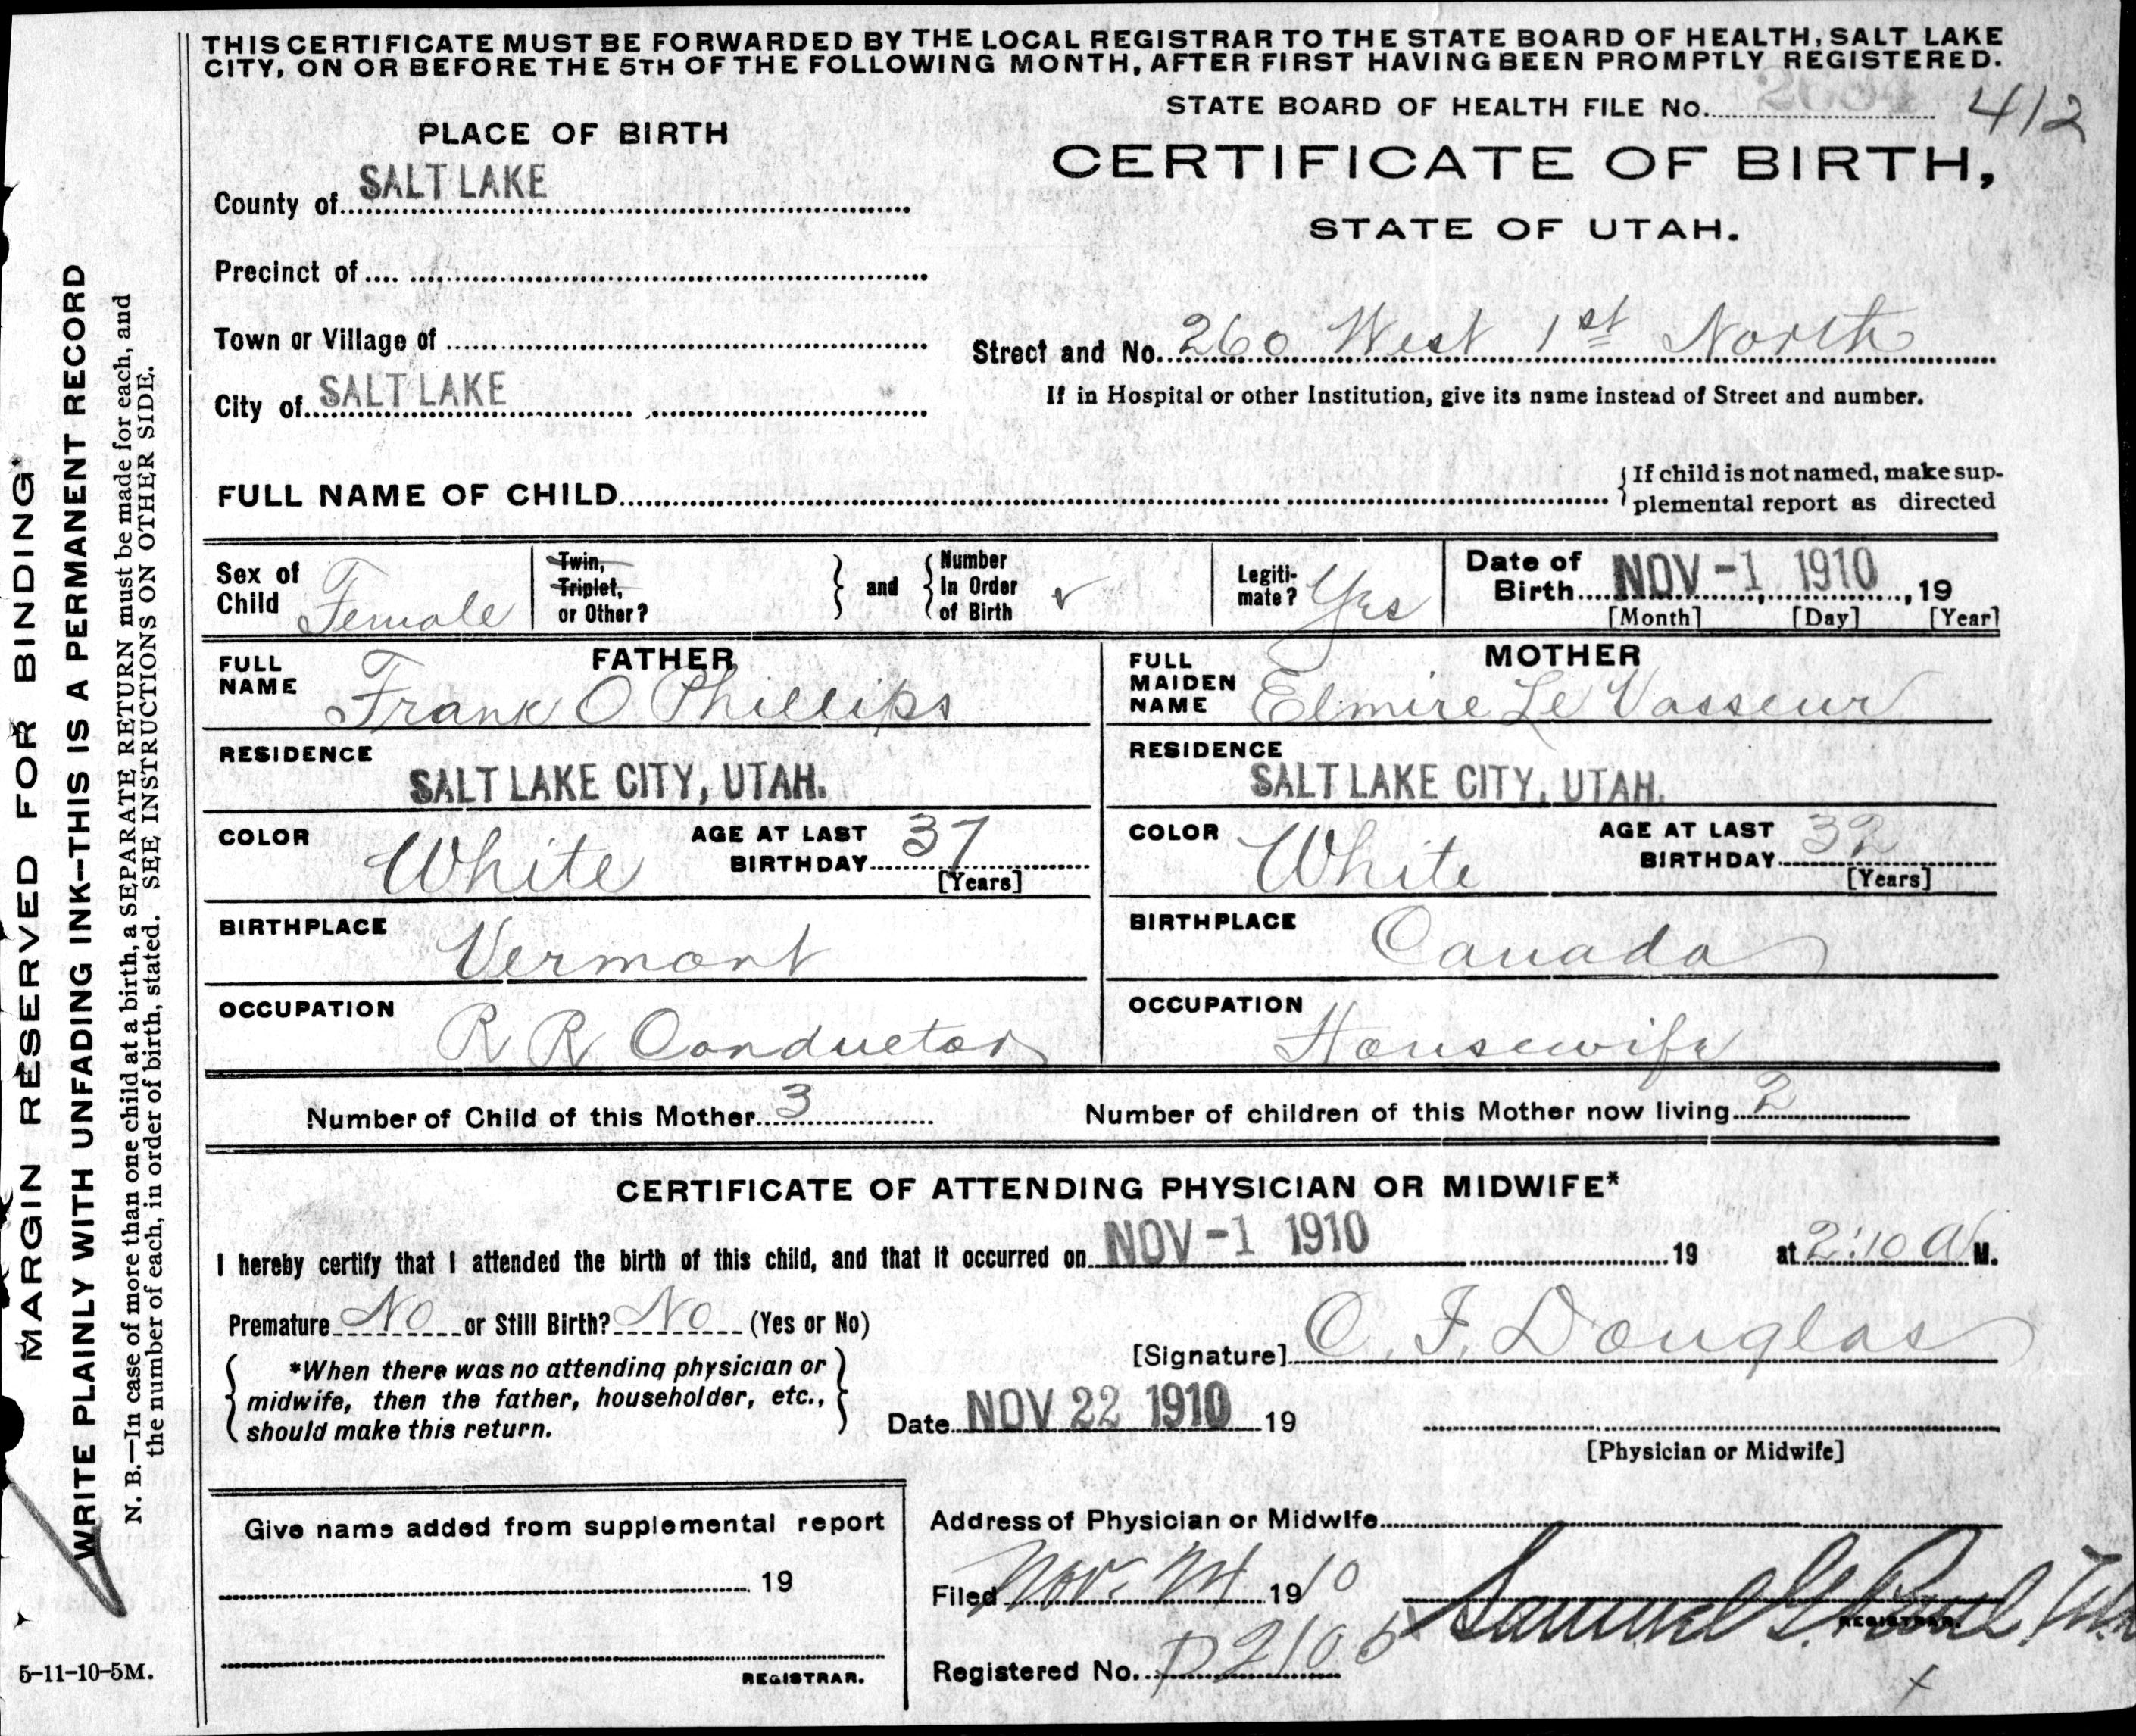 THIS CERTIFICATE MUST BE FORWARDED BY THE LOCAL REGISTRAR TO THE STATE BOARD OF HEALTH, SALT LAKE
CITY, ON OR BEFORE THE 5TH OF THE FOLLOWING MONTH, AFTER FIRST HAVING BEEN PROMPTLY REGISTERED.
STATE BOARD OF HEALTH FILE No. 412
PLACE OF BIRTH
CERTIFICATE OF BIRTH,
STATE OF UTAH.
County of SALT LAKE
Precinct of
Town or Village of
Street and No. 260 West 1st North
City of SALT LAKE
If in Hospital or other Institution, give its name instead of Street and number.
FULL NAME OF CHILD
{If child is not named, make sup-
plemental report as directed
Sex of Child Female
Twin, Triplet, or Other?
and
Number In Order of Birth
Legiti-mate? Yes
Date of Birth NOV -1 1910, 19
[Month] [Day] [Year]
FATHER
FULL NAME Frank O Phillips
RESIDENCE
SALT LAKE CITY, UTAH.
COLOR White
AGE AT LAST BIRTHDAY 37
[Years]
BIRTHPLACE Vermont
OCCUPATION R R Conductor
MOTHER
FULL MAIDEN NAME Elmire Le Vasseur
RESIDENCE
SALT LAKE CITY, UTAH.
COLOR White
AGE AT LAST BIRTHDAY 32
[Years]
BIRTHPLACE Canada
OCCUPATION Housewife
Number of Child of this Mother 3
Number of children of this Mother now living 2
CERTIFICATE OF ATTENDING PHYSICIAN OR MIDWIFE*
I hereby certify that I attended the birth of this child, and that it occurred on NOV -1 1910 19 at 2:10 A M.
Premature No or Still Birth? No (Yes or No)
[Signature] C. F. Douglas
*When there was no attending physician or
midwife, then the father, householder, etc.,
should make this return.
Date NOV 22 1910 19
[Physician or Midwife]
Give name added from supplemental report
19
REGISTRAR.
Address of Physician or Midwife
Filed Nov. 1910
Samuel G. Paul
REGISTRAR.
Registered No. 2105
MARGIN RESERVED FOR BINDING.
WRITE PLAINLY WITH UNFADING INK--THIS IS A PERMANENT RECORD
N. B.—In case of more than one child at a birth, a SEPARATE RETURN must be made for each, and
the number of each, in order of birth, stated. SEE INSTRUCTIONS ON OTHER SIDE.
5-11-10-5M.